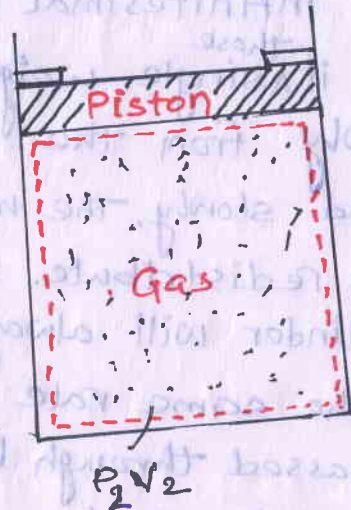 Piston
Gas
P2 V2